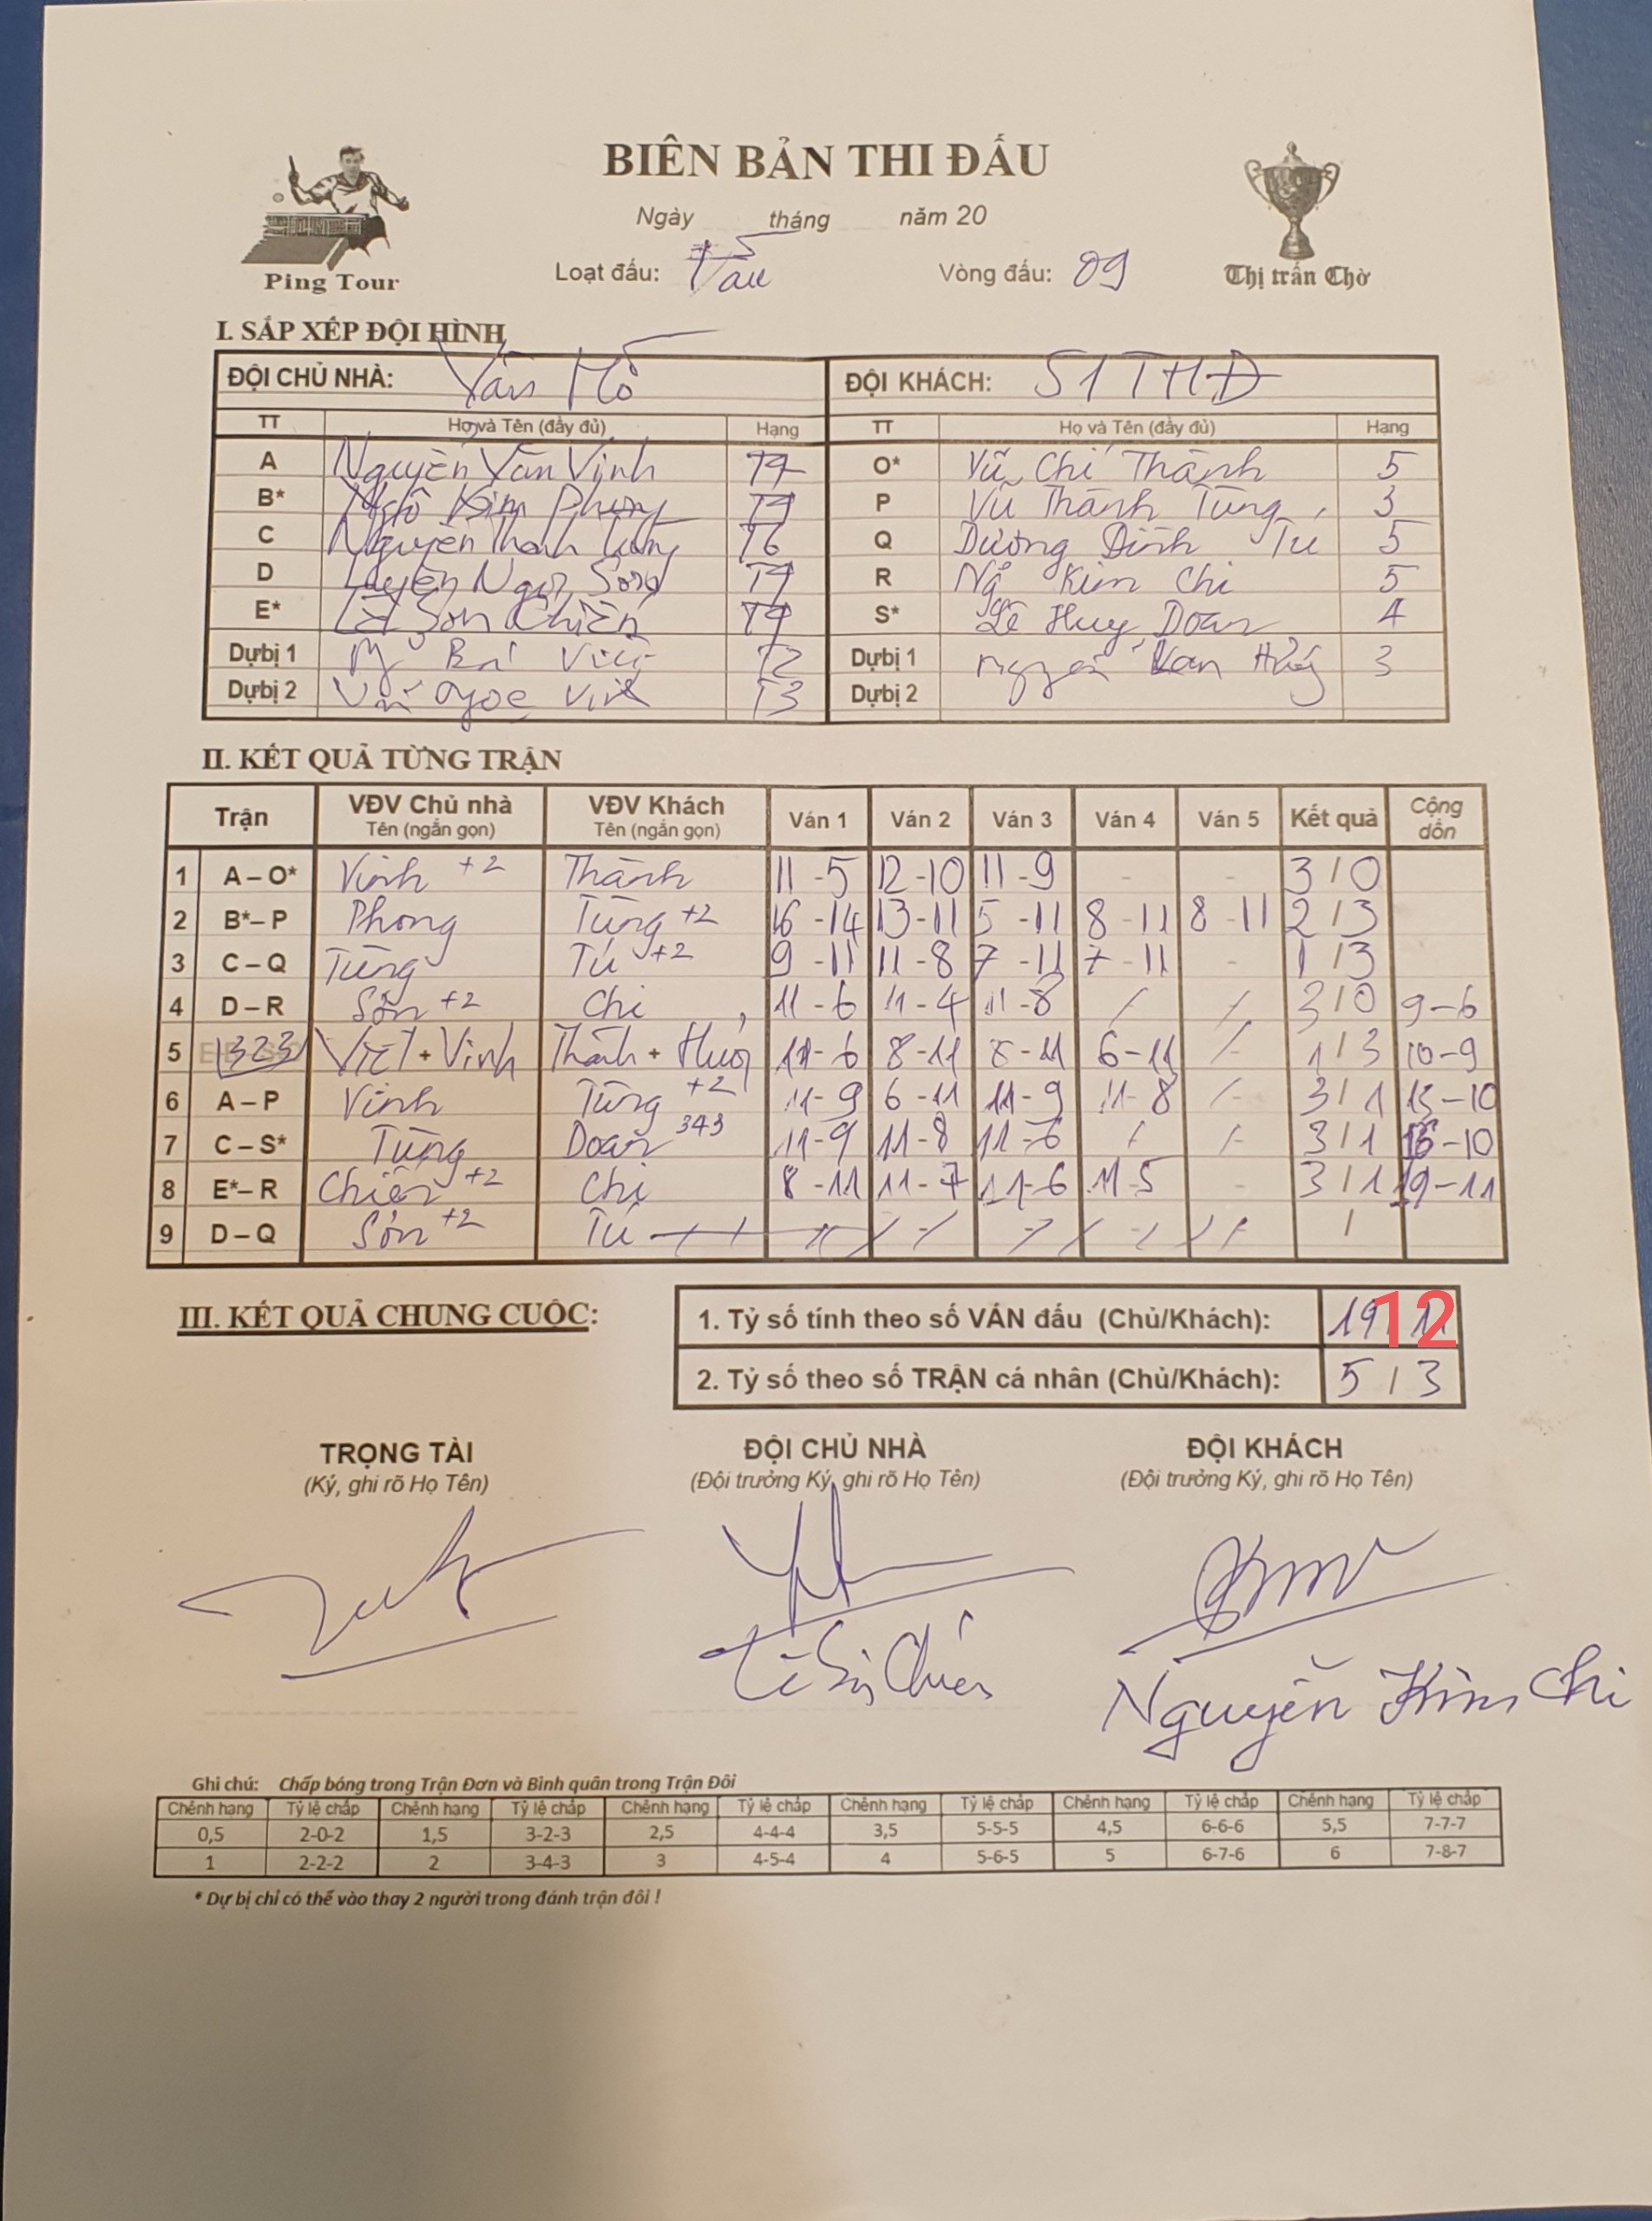 BIÊN BẢN THI ĐẤU
Ngày tháng năm 20
Loạt đấu: Vòng đấu: 09
Ping Tour
Thị trấn Chờ
I. SẮP XẾP ĐỘI HÌNH
ĐỘI CHỦ NHÀ: Vân Hồ ĐỘI KHÁCH: 51 THĐ
TT Họ và Tên (đầy đủ) Hạng TT Họ và Tên (đầy đủ) Hạng
A Nguyễn Văn Vinh O* Vũ Chí Thành 5
B* Ngô Kim Phong P Vũ Thành Tùng 3
C Nguyễn Thanh Tùng T6 Q Dương Đình Tú 5
D Ngọc Sơn R Ng Kim Chi 5
E* Lê Sơn Chiến S* Lê Huy Doan 4
Dự bị 1 Bá Việt T2 Dự bị 1 Nguyễn Văn Hưng 3
Dự bị 2 Ngọc T3 Dự bị 2
II. KẾT QUẢ TỪNG TRẬN
Trận VĐV Chủ nhà Tên (ngắn gọn) VĐV Khách Tên (ngắn gọn) Ván 1 Ván 2 Ván 3 Ván 4 Ván 5 Kết quả Cộng dồn
1 A – O* Vinh +2 Thành 11 - 5 12 - 10 11 - 9 - - 3 / 0
2 B*– P Phong Tùng +2 16 - 14 13 - 11 5 - 11 8 - 11 8 - 11 2 / 3
3 C – Q Tùng Tú +2 9 - 11 11 - 8 7 - 11 7 - 11 - 1 / 3
4 D – R Sơn +2 Chi 11 - 6 11 - 4 11 - 8 / / 3 / 0 9 - 6
5 323 Việt + Vinh Thành + Hưng 11 - 6 8 - 11 8 - 11 6 - 11 / 1 / 3 10 - 9
6 A – P Vinh Tùng +2 11 - 9 6 - 11 11 - 9 11 - 8 / 3 / 1 13 - 10
7 C – S* Tùng Doan 343 11 - 9 11 - 8 11 - 6 / / 3 / 1 16 - 10
8 E*– R Chiến +2 Chi 8 - 11 11 - 7 11 - 6 11 - 5 - 3 / 1 19 - 11
9 D – Q Sơn +2 Tú /
III. KẾT QUẢ CHUNG CUỘC:
1. Tỷ số tính theo số VÁN đấu (Chủ/Khách): 19 / 12
2. Tỷ số theo số TRẬN cá nhân (Chủ/Khách): 5 / 3
TRỌNG TÀI ĐỘI CHỦ NHÀ ĐỘI KHÁCH
(Ký, ghi rõ Họ Tên) (Đội trưởng Ký, ghi rõ Họ Tên) (Đội trưởng Ký, ghi rõ Họ Tên)
Lê Sơn Chiến Nguyễn Kim Chi
Ghi chú: Chấp bóng trong Trận Đơn và Bình quân trong Trận Đôi
Chênh hạng Tỷ lệ chấp Chênh hạng Tỷ lệ chấp Chênh hạng Tỷ lệ chấp Chênh hạng Tỷ lệ chấp Chênh hạng Tỷ lệ chấp Chênh hạng Tỷ lệ chấp
0,5 2-0-2 1,5 3-2-3 2,5 4-4-4 3,5 5-5-5 4,5 6-6-6 5,5 7-7-7
1 2-2-2 2 3-4-3 3 4-5-4 4 5-6-5 5 6-7-6 6 7-8-7
* Dự bị chỉ có thể vào thay 2 người trong đánh trận đôi !